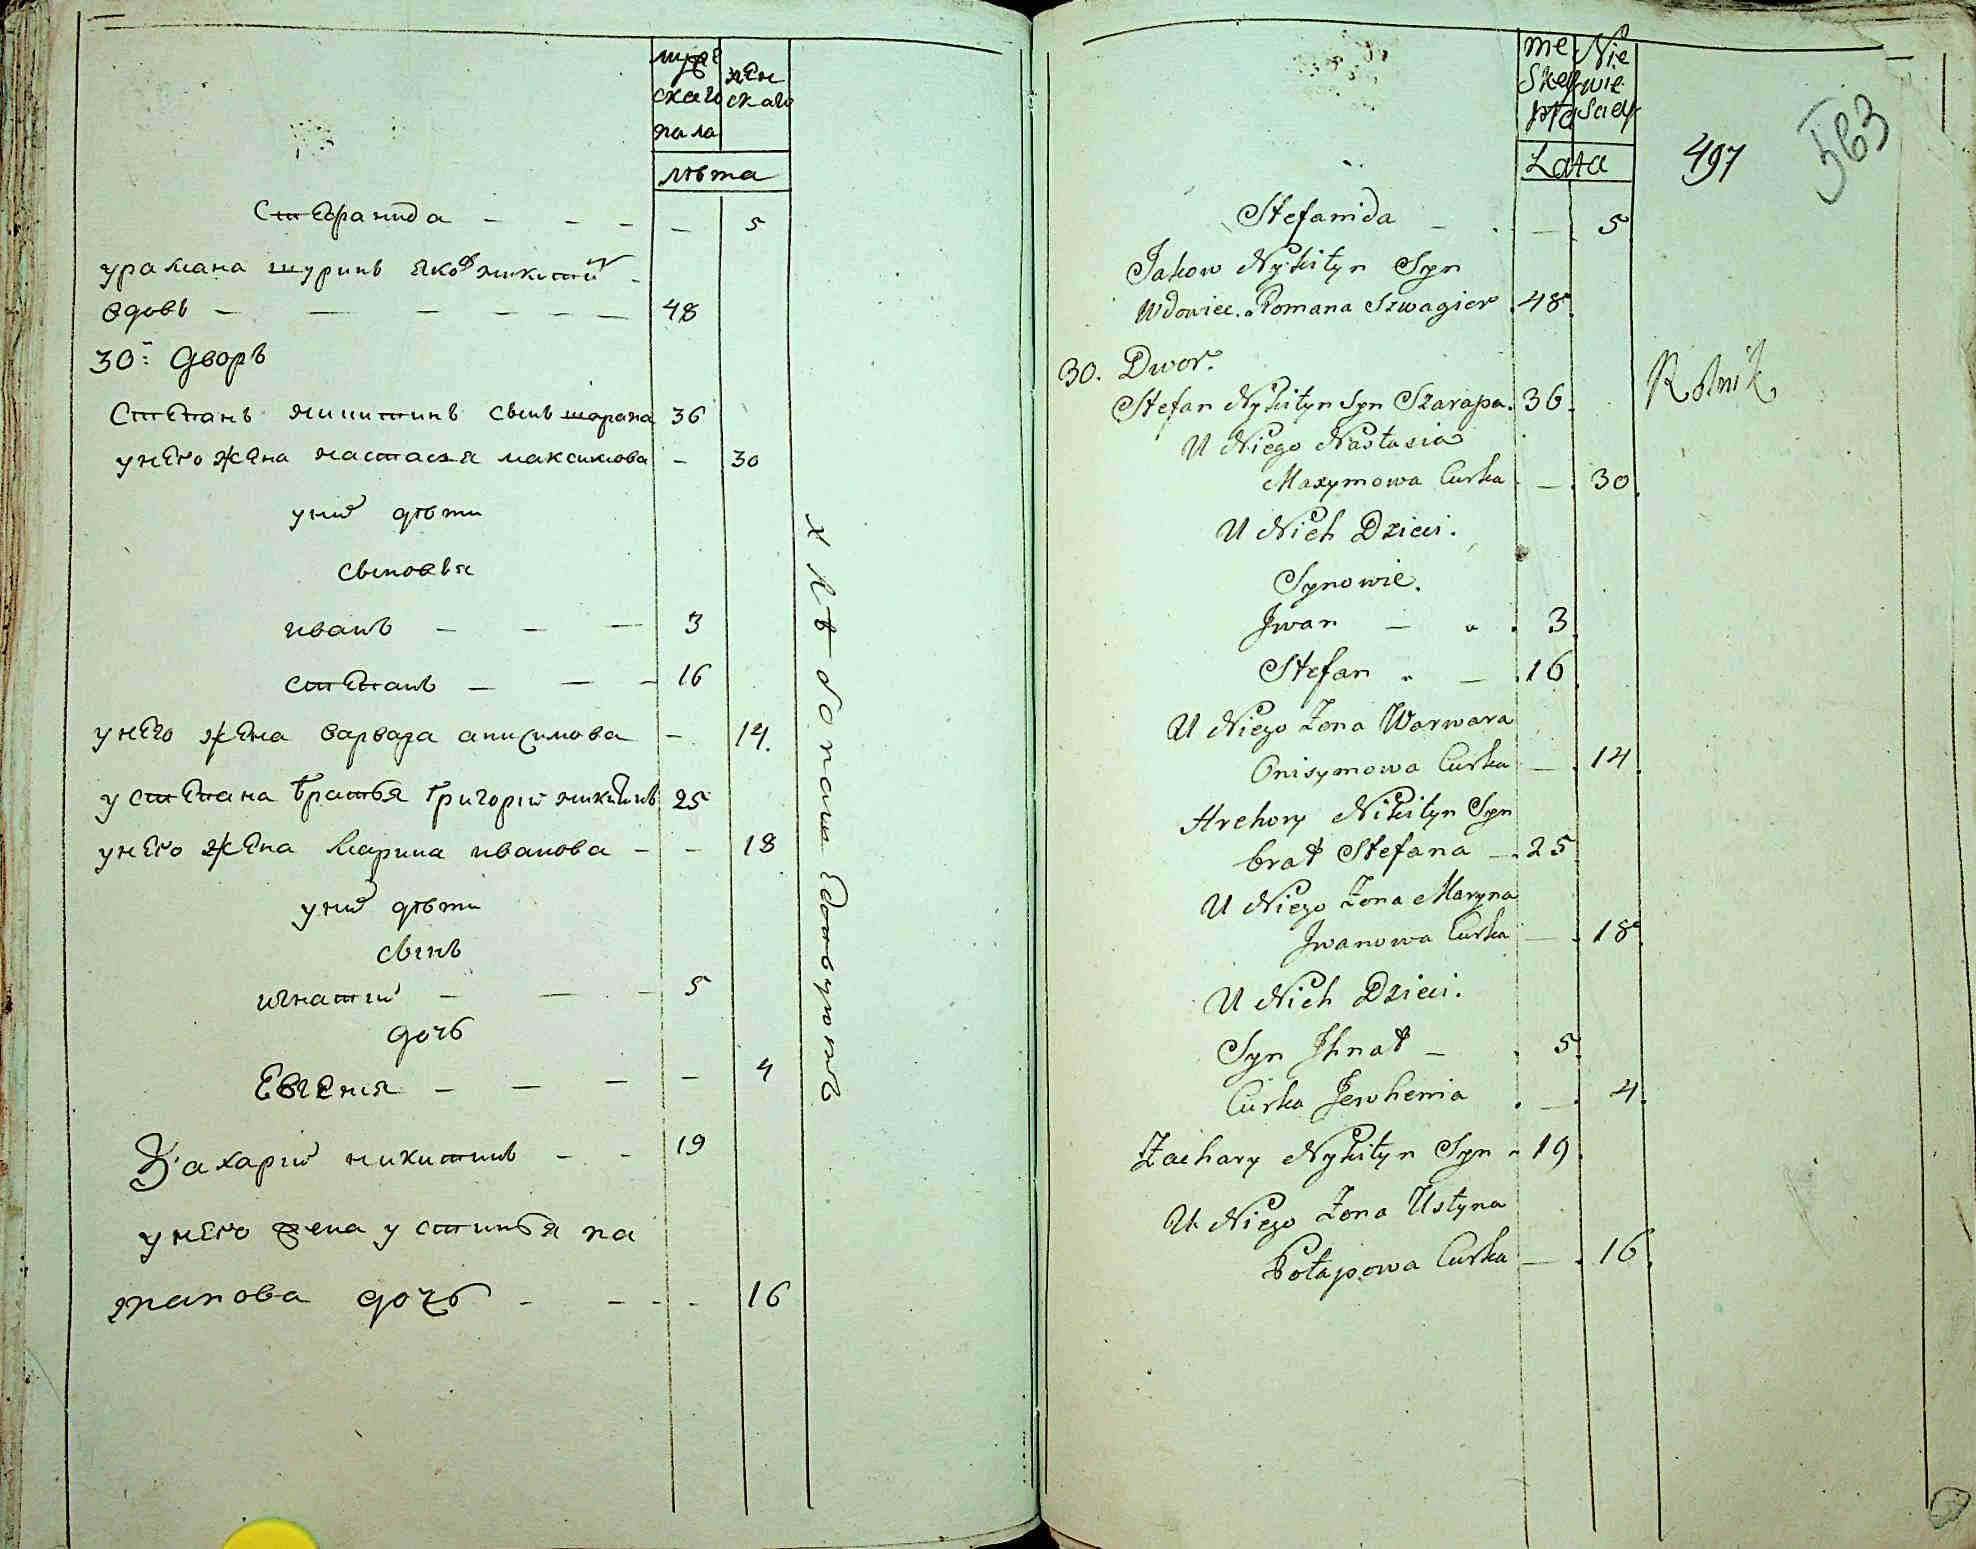 мужескаго пола
женскаго
лѣта
Стефанида — — — — 5
у романа шуринъ яковъ никитинъ
вдовъ — — — — — — 48
30: Дворъ
Степанъ никитинъ сынъ шарапа 36
у него жена настасья максимова — 30
у них дѣти
сыновья
иванъ — — — 3
степанъ — — — 16
у него жена варвара анисимова — 14.
у степана братья григорій никитинъ 25
у него жена марина иванова — — 18
у них дѣти
сынъ
игнатій — — — 5
дочь
Евгения — — — — 4
Захарій никитинъ — — 19
у него жена устинья по
тапова дочь — — — — 16
хлѣбопашествуютъ
Meskey płci
Niewiesciey
Lata
497
563
Stefanida — — 5
Jakow Nykityn Syn
Wdowiec. Romana Szwagier 48
30. Dwor.
Stefan Nykityn Syn Szarapa. 36.
Rolnik
U Niego Nastasia
Maxymowa Curka — 30
U Nich Dzieci.
Synowie.
Jwan — 3
Stefan — 16
U Niego Zona Warwara
Onisymowa Curka — 14
Hrehory Nikityn Syn
brat Stefana — 25
U Niego Zona Maryna
Jwanowa Curka — 18
U Nich Dzieci.
Syn Jhnat — 5
Curka Jewhenia — 4.
Zachary Nykityn Syn 19
U Niego Zona Ustyna
Potapowa Curka — 16